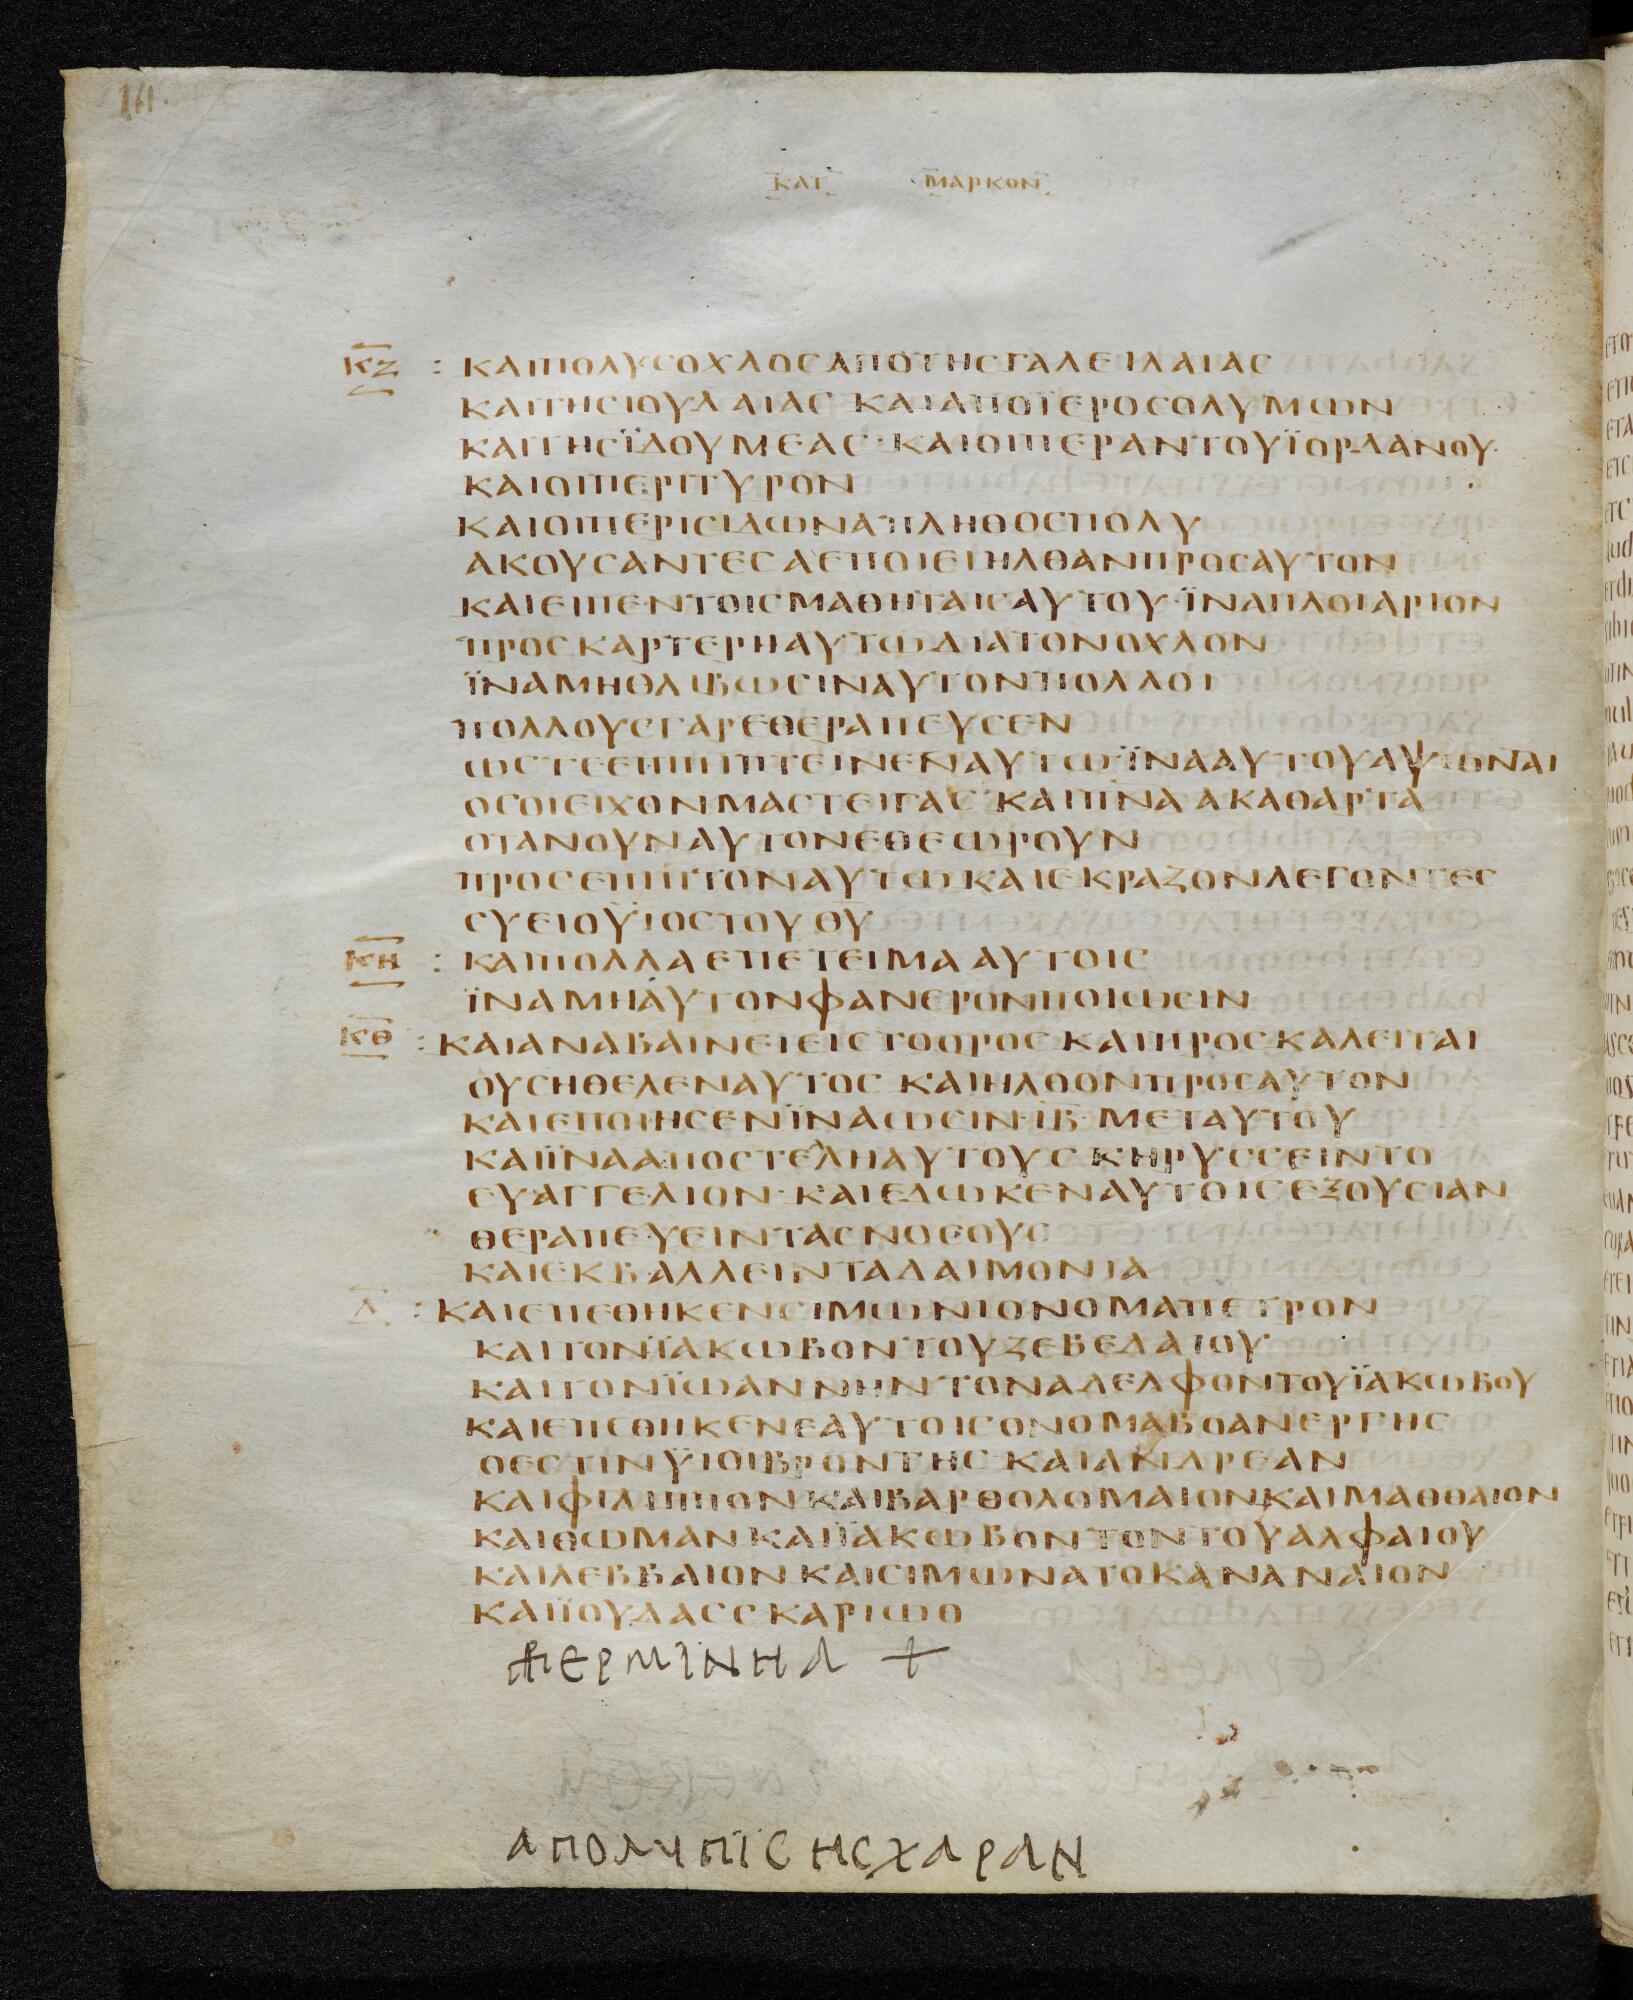 ΚΑΤ ΜΑΡΚΟΝ
ΚΖ : ΚΑΙΠΟΛΥΣΟΧΛΟΣΑΠΟΤΗΣΓΑΛΕΙΛΑΙΑΣ
ΚΑΙΤΗΣΙΟΥΔΑΙΑΣ ΚΑΙΑΠΟΪΕΡΟΣΟΛΥΜΩΝ
ΚΑΙΤΗΣΪΔΟΥΜΕΑΣ·ΚΑΙΟΙΠΕΡΑΝΤΟΥΪΟΡΔΑΝΟΥ·
ΚΑΙΟΙΠΕΡΙΤΥΡΟΝ
ΚΑΙΟΙΠΕΡΙΣΙΔΩΝΑΠΛΗΘΟΣΠΟΛΥ
ΑΚΟΥΣΑΝΤΕΣΑΕΠΟΙΕΙΗΛΘΑΝΠΡΟΣΑΥΤΟΝ
ΚΑΙΕΙΠΕΝΤΟΙΣΜΑΘΗΤΑΙΣΑΥΤΟΥ·ΪΝΑΠΛΟΙΑΡΙΟΝ
ΠΡΟΣΚΑΡΤΕΡΗΑΥΤΩΔΙΑΤΟΝΟΧΛΟΝ
ΪΝΑΜΗΘΛΙΒΩΣΙΝΑΥΤΟΝΠΟΛΛΟΙ
ΠΟΛΛΟΥΣΓΑΡΕΘΕΡΑΠΕΥΣΕΝ
ΩΣΤΕΕΠΙΠΙΠΤΕΙΝΕΝΑΥΤΩ·ΪΝΑΑΥΤΟΥΑΨΩΝΤΑΙ
ΟΣΟΙΕΙΧΟΝΜΑΣΤΕΙΓΑΣ ΚΑΙΠΝΑ ΑΚΑΘΑΡΤΑ
ΟΤΑΝΟΥΝΑΥΤΟΝΕΘΕΩΡΟΥΝ
ΠΡΟΣΕΠΙΠΤΟΝΑΥΤΩ ΚΑΙΕΚΡΑΖΟΝΛΕΓΟΝΤΕΣ
ΣΥΕΙΟΫΙΟΣΤΟΥ ΘΥ
ΚΗ : ΚΑΙΠΟΛΛΑΕΠΕΤΕΙΜΑ ΑΥΤΟΙΣ
ΪΝΑΜΗΑΥΤΟΝΦΑΝΕΡΟΝΠΟΙΩΣΙΝ
ΚΘ : ΚΑΙΑΝΑΒΑΙΝΕΙΕΙΣΤΟΟΡΟΣ ΚΑΙΠΡΟΣΚΑΛΕΙΤΑΙ
ΟΥΣΗΘΕΛΕΝΑΥΤΟΣ ΚΑΙΗΛΘΟΝΠΡΟΣΑΥΤΟΝ
ΚΑΙΕΠΟΙΗΣΕΝΪΝΑΩΣΙΝ·ΙΒ·ΜΕΤΑΥΤΟΥ
ΚΑΙΪΝΑΑΠΟΣΤΕΛΗΑΥΤΟΥΣ ΚΗΡΥΣΣΕΙΝΤΟ
ΕΥΑΓΓΕΛΙΟΝ·ΚΑΙΕΔΩΚΕΝΑΥΤΟΙΣΕΞΟΥΣΙΑΝ
ΘΕΡΑΠΕΥΕΙΝΤΑΣΝΟΣΟΥΣ
ΚΑΙΕΚΒΑΛΛΕΙΝΤΑΔΑΙΜΟΝΙΑ
Λ : ΚΑΙΕΠΕΘΗΚΕΝΣΙΜΩΝΙΟΝΟΜΑΠΕΤΡΟΝ
ΚΑΙΤΟΝΪΑΚΩΒΟΝΤΟΥΖΕΒΕΔΑΙΟΥ
ΚΑΙΤΟΝΪΩΑΝΝΗΝΤΟΝΑΔΕΛΦΟΝΤΟΥΪΑΚΩΒΟΥ
ΚΑΙΕΠΕΘΗΚΕΝΕΑΥΤΟΙΣΟΝΟΜΑΒΟΑΝΕΡΓΗΣ
ΟΕΣΤΙΝΫΙΟΙΒΡΟΝΤΗΣ ΚΑΙΑΝΔΡΕΑΝ
ΚΑΙΦΙΛΙΠΠΟΝΚΑΙΒΑΡΘΟΛΟΜΑΙΟΝΚΑΙΜΑΘΘΑΙΟΝ
ΚΑΙΘΩΜΑΝΚΑΙΪΑΚΩΒΟΝΤΟΝΤΟΥΑΛΦΑΙΟΥ
ΚΑΙΛΕΒΒΑΙΟΝ ΚΑΙΣΙΜΩΝΑΤΟΚΑΝΑΝΑΙΟΝ
ΚΑΙΪΟΥΔΑΣΣΚΑΡΙΩΘ
ΕΡΜΙΝΗΑ +
ΑΠΟΛΥΠΙΣΗΣΧΑΡΑΝ